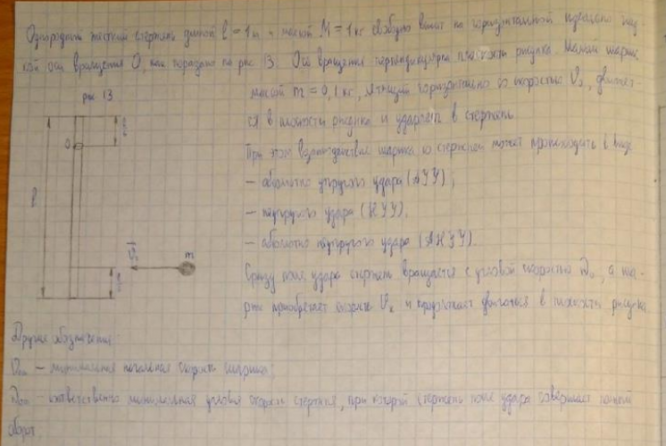 Однородный жесткий стержень длиной l = 1 м и массой M = 1 кг свободно висит на горизонтальной идеально глад-
кой оси вращения O, как показано на рис 13. Ось вращения перпендикулярна плоскости рисунка. Малый шарик
рис 13
массой m = 0,1 кг, летящий горизонтально со скоростью V₀, движет-
ся в плоскости рисунка и ударяется в стержень.
При этом взаимодействие шарика со стержнем может происходить в виде
– абсолютно упругого удара (АУУ),
– неупругого удара (НУУ),
– абсолютно неупругого удара (АНУУ).
Сразу после удара стержень вращается с угловой скоростью ω₀, а ша-
рик приобретает скорость Vₖ и продолжает двигаться в плоскости рисунка
O
l
m
Другие обозначения:
– минимальная начальная скорость шарика,
– соответственно минимальная угловая скорость стержня, при которой стержень после удара совершает полный
оборот.